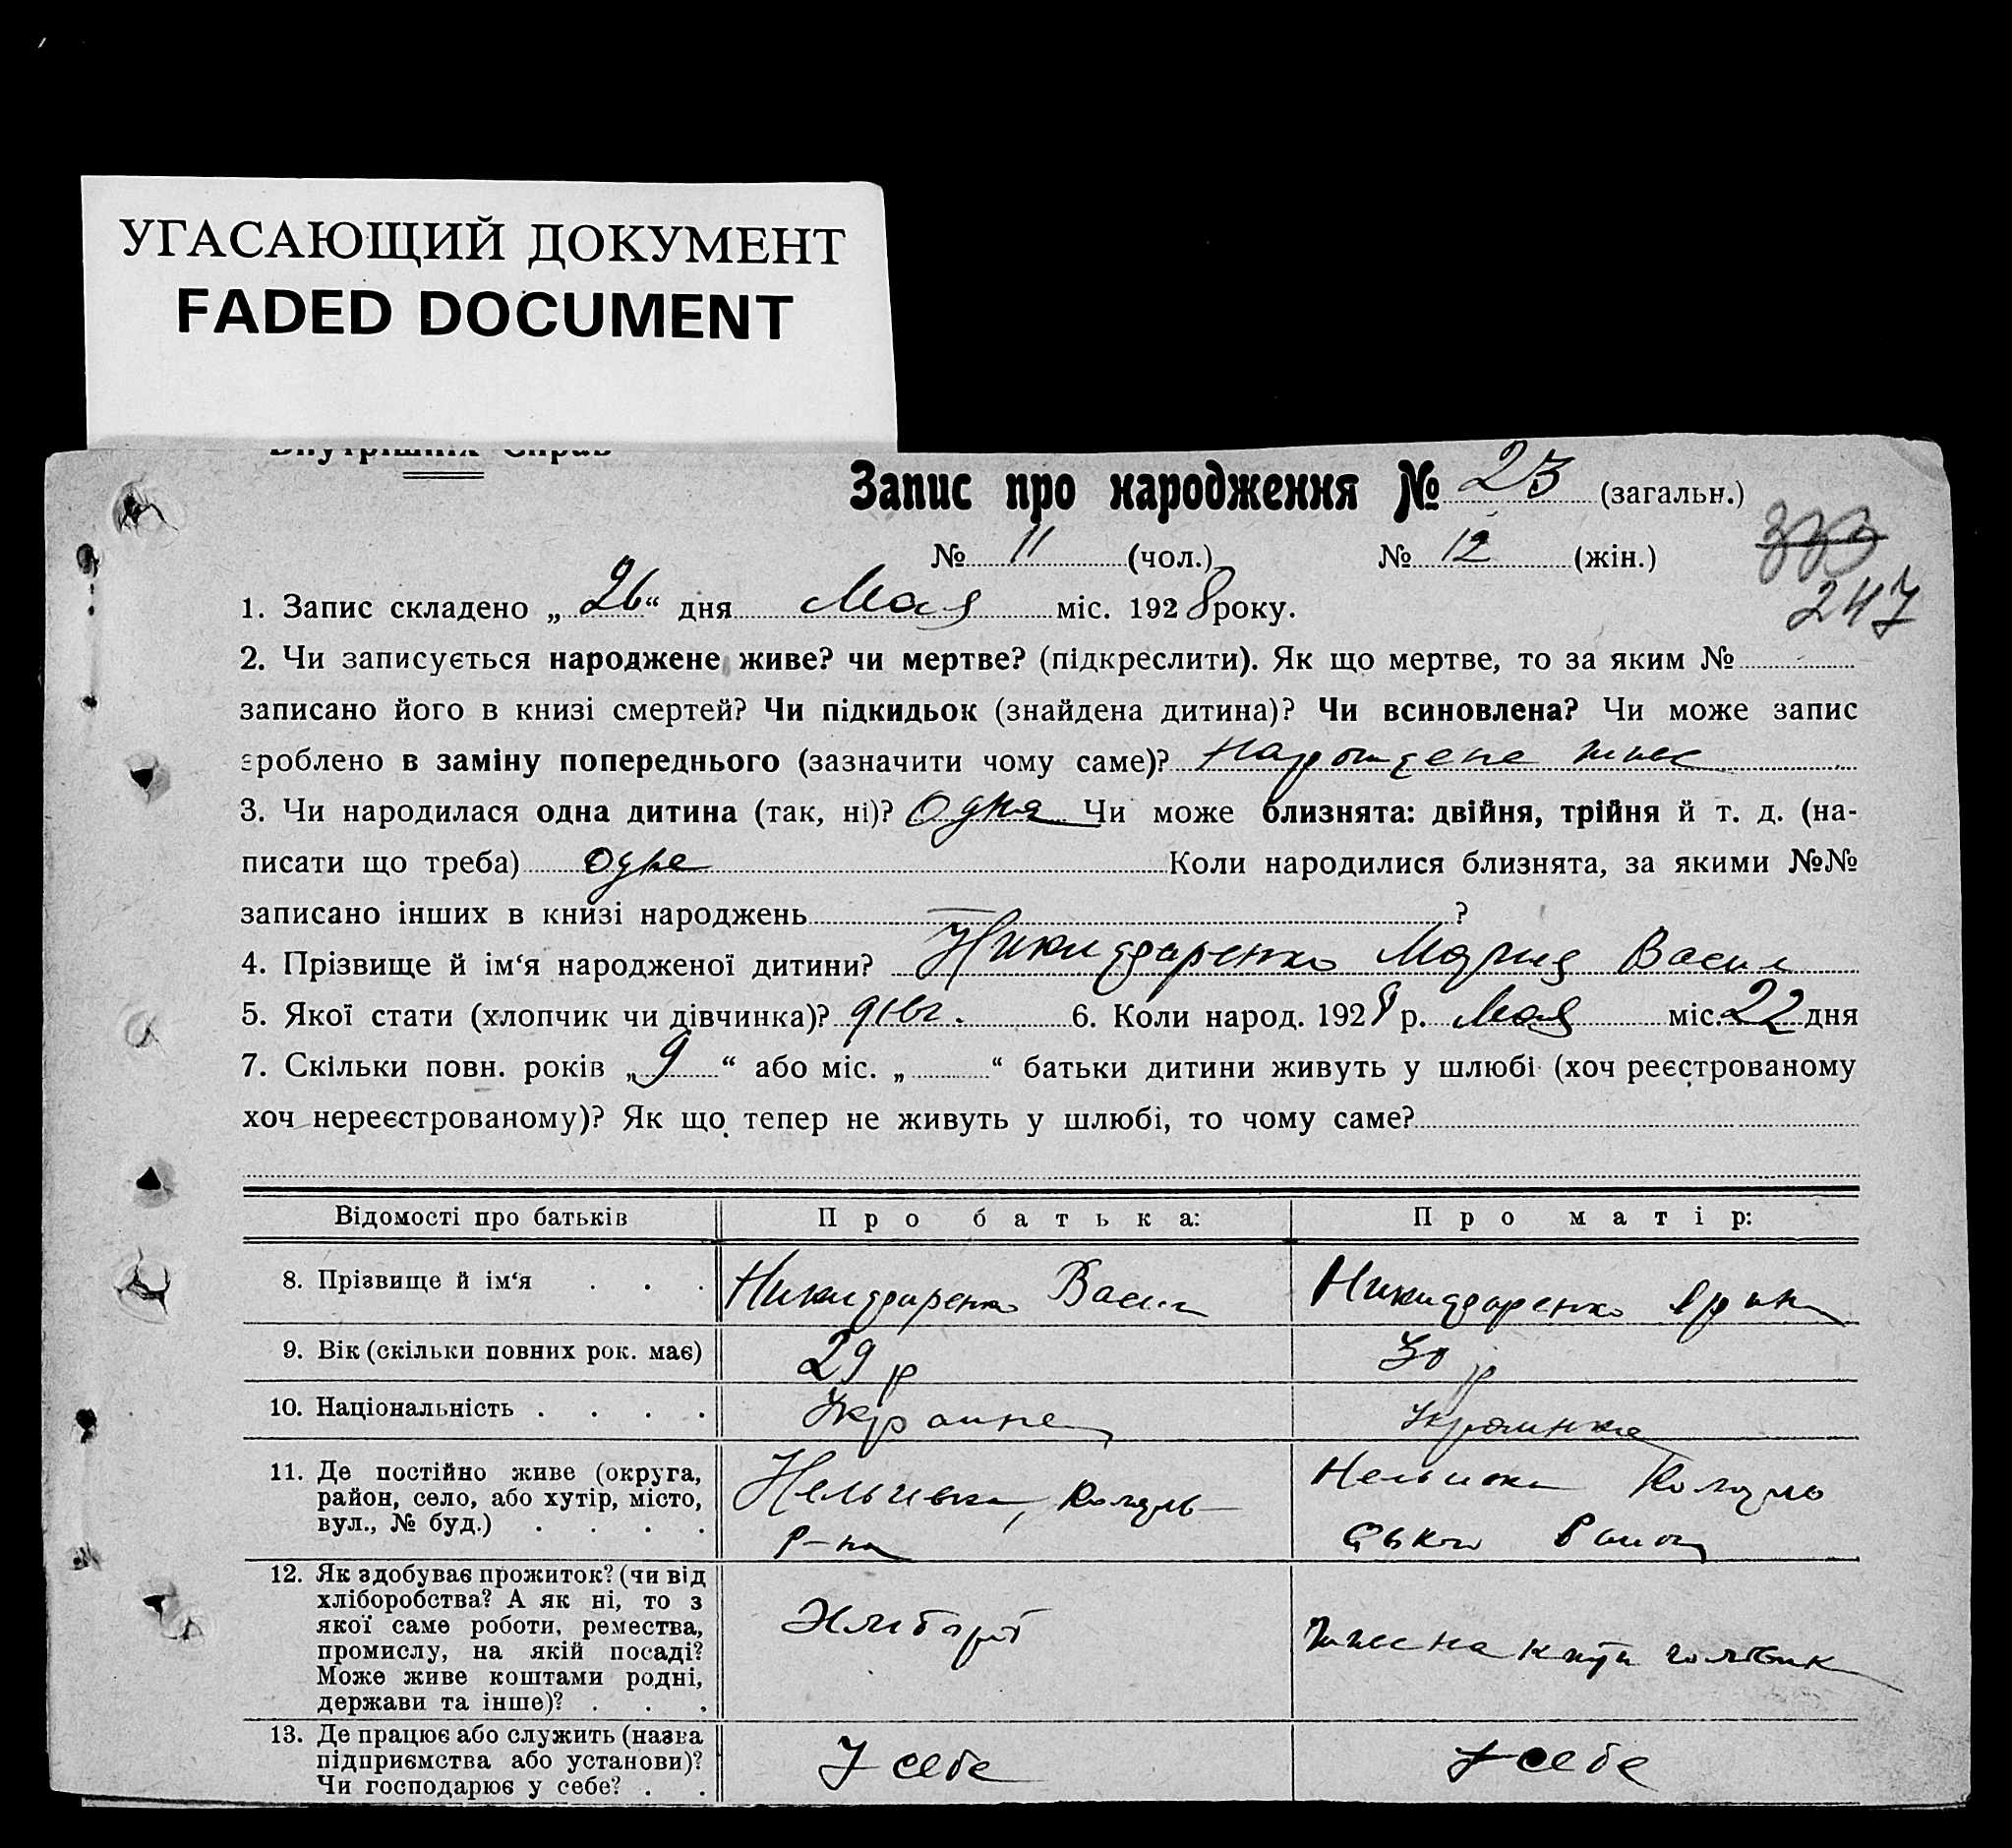 УГАСАЮЩИЙ ДОКУМЕНТ
FADED DOCUMENT
Внутрішніх Справ
Запис про народження № 23 (загальн.)
№ 11 (чол.) № 12 (жін.)
333
247
1. Запис складено „26“ дня Мая міс. 1928 року.
2. Чи записується народжене живе? чи мертве? (підкреслити). Як що мертве, то за яким №
записано його в книзі смертей? Чи підкидьок (знайдена дитина)? Чи всиновлена? Чи може запис
зроблено в заміну попереднього (зазначити чому саме)? живе
3. Чи народилася одна дитина (так, ні)? Одна Чи може близнята: двійня, трійня й т. д. (на-
писати що треба) одна Коли народилися близнята, за якими №№
записано інших в книзі народжень ?
4. Прізвище й ім‘я народженої дитини? Мария Васил
5. Якої стати (хлопчик чи дівчинка)? дівч. 6. Коли народ. 1928 р. Мая міс. 22 дня
7. Скільки повн. років „9“ або міс. „ “ батьки дитини живуть у шлюбі (хоч реєстрованому
хоч нереєстрованому)? Як що тепер не живуть у шлюбі, то чому саме?
Відомості про батьків Про батька: Про матір:
8. Прізвище й ім‘я . . . Васил
9. Вік (скільки повних рок. має) 29 р 30 р
10. Національність . . . . Украинка
11. Де постійно живе (округа,
район, село, або хутір, місто,
вул., № буд.) . . . . р-на
12. Як здобуває прожиток? (чи від
хліборобства? А як ні, то з
якої саме роботи, ремества,
промислу, на якій посаді?
Може живе коштами родні,
держави та інше)? . . . Хлибороб
13. Де працює або служить (назва
підприємства або установи)?
Чи господарює у себе? . . У себе У себе